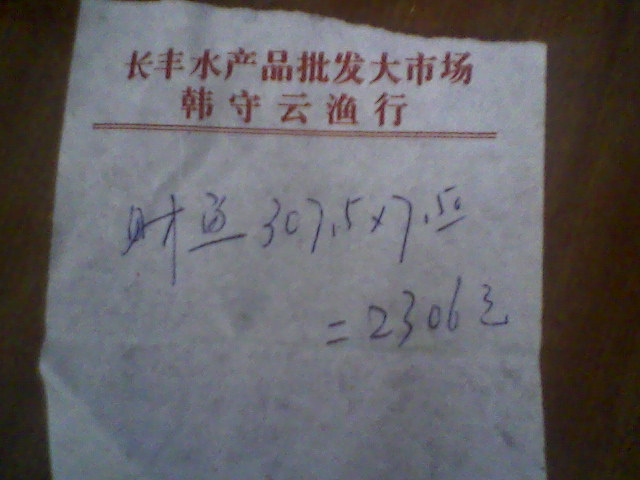 长丰水产品批发大市场
韩守云渔行
财鱼 307.5×7.50
=2306元